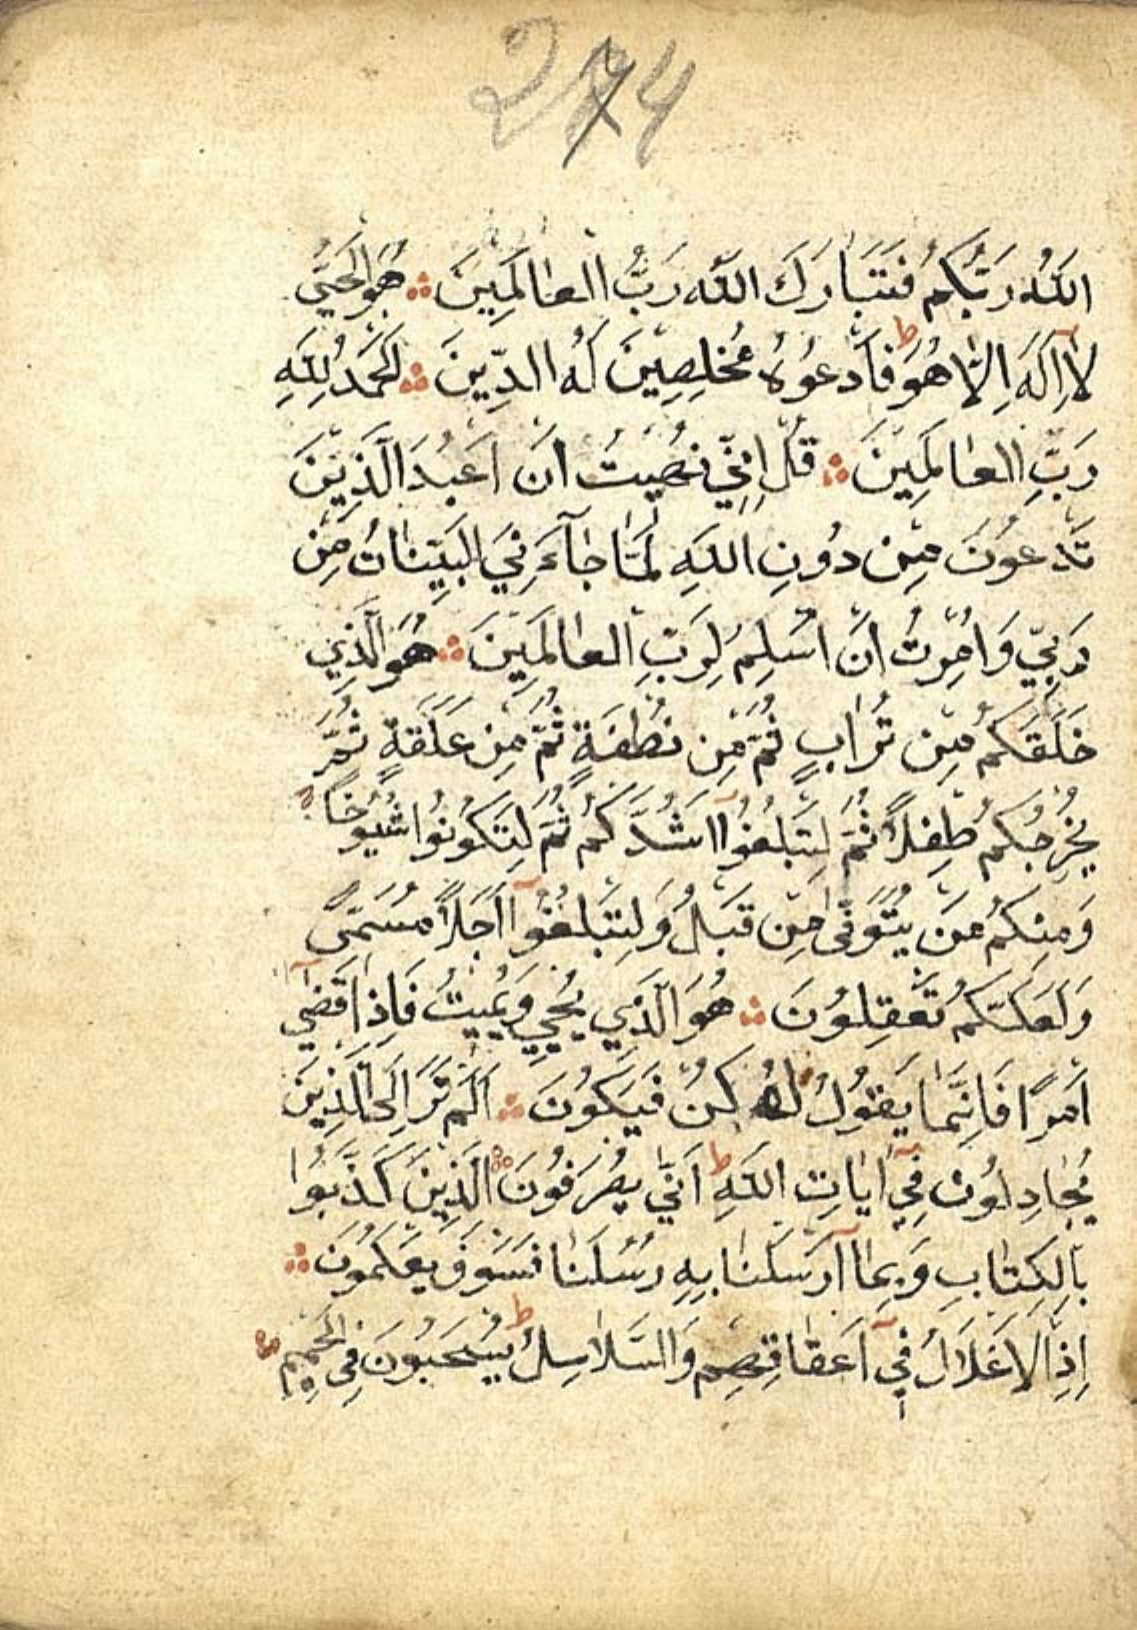 274
اللهُ رَبُّكُمْ فَتَبَارَكَ اللهُ رَبُّ الْعَالَمِينَ ۞ هُوَ الْحَيُّ
لَا اِلَهَ اِلَّا هُوَ ط فَادْعُوهُ مُخْلِصِينَ لَهُ الدِّينَ ۞ اَلْحَمْدُ لِلَّهِ
رَبِّ الْعَالَمِينَ ۞ قُلْ اِنِّي نُهِيتُ اَنْ اَعْبُدَ الَّذِينَ
تَدْعُونَ مِنْ دُونِ اللهِ لَمَّا جَآءَنِيَ الْبَيِّنَاتُ مِنْ
رَبِّي وَاُمِرْتُ اَنْ اُسْلِمَ لِرَبِّ الْعَالَمِينَ ۞ هُوَ الَّذِي
خَلَقَكُمْ مِنْ تُرَابٍ ثُمَّ مِنْ نُطْفَةٍ ثُمَّ مِنْ عَلَقَةٍ ثُمَّ
يُخْرِجُكُمْ طِفْلًا ثُمَّ لِتَبْلُغُوآ اَشُدَّكُمْ ثُمَّ لِتَكُونُوا شُيُوخًا
وَمِنْكُمْ مَنْ يُتَوَفّٰى مِنْ قَبْلُ وَلِتَبْلُغُوآ اَجَلًا مُسَمًّى
وَلَعَلَّكُمْ تَعْقِلُونَ ۞ هُوَ الَّذِي يُحْيِي وَيُمِيتُ فَاِذَا قَضٰىٓ
اَمْرًا فَاِنَّمَا يَقُولُ لَهُ كُنْ فَيَكُونُ ۞ اَلَمْ تَرَ اِلَى الَّذِينَ
يُجَادِلُونَ فِيٓ اٰيَاتِ اللهِ ط اَنّٰى يُصْرَفُونَ ۞ الَّذِينَ كَذَّبُوا
بِالْكِتَابِ وَبِمَآ اَرْسَلْنَا بِهِ رُسُلَنَا فَسَوْفَ يَعْلَمُونَ ۞
اِذِ الْاَغْلَالُ فِيٓ اَعْنَاقِهِمْ وَالسَّلَاسِلُ ط يُسْحَبُونَ فِي الْحَمِيمِ ۞